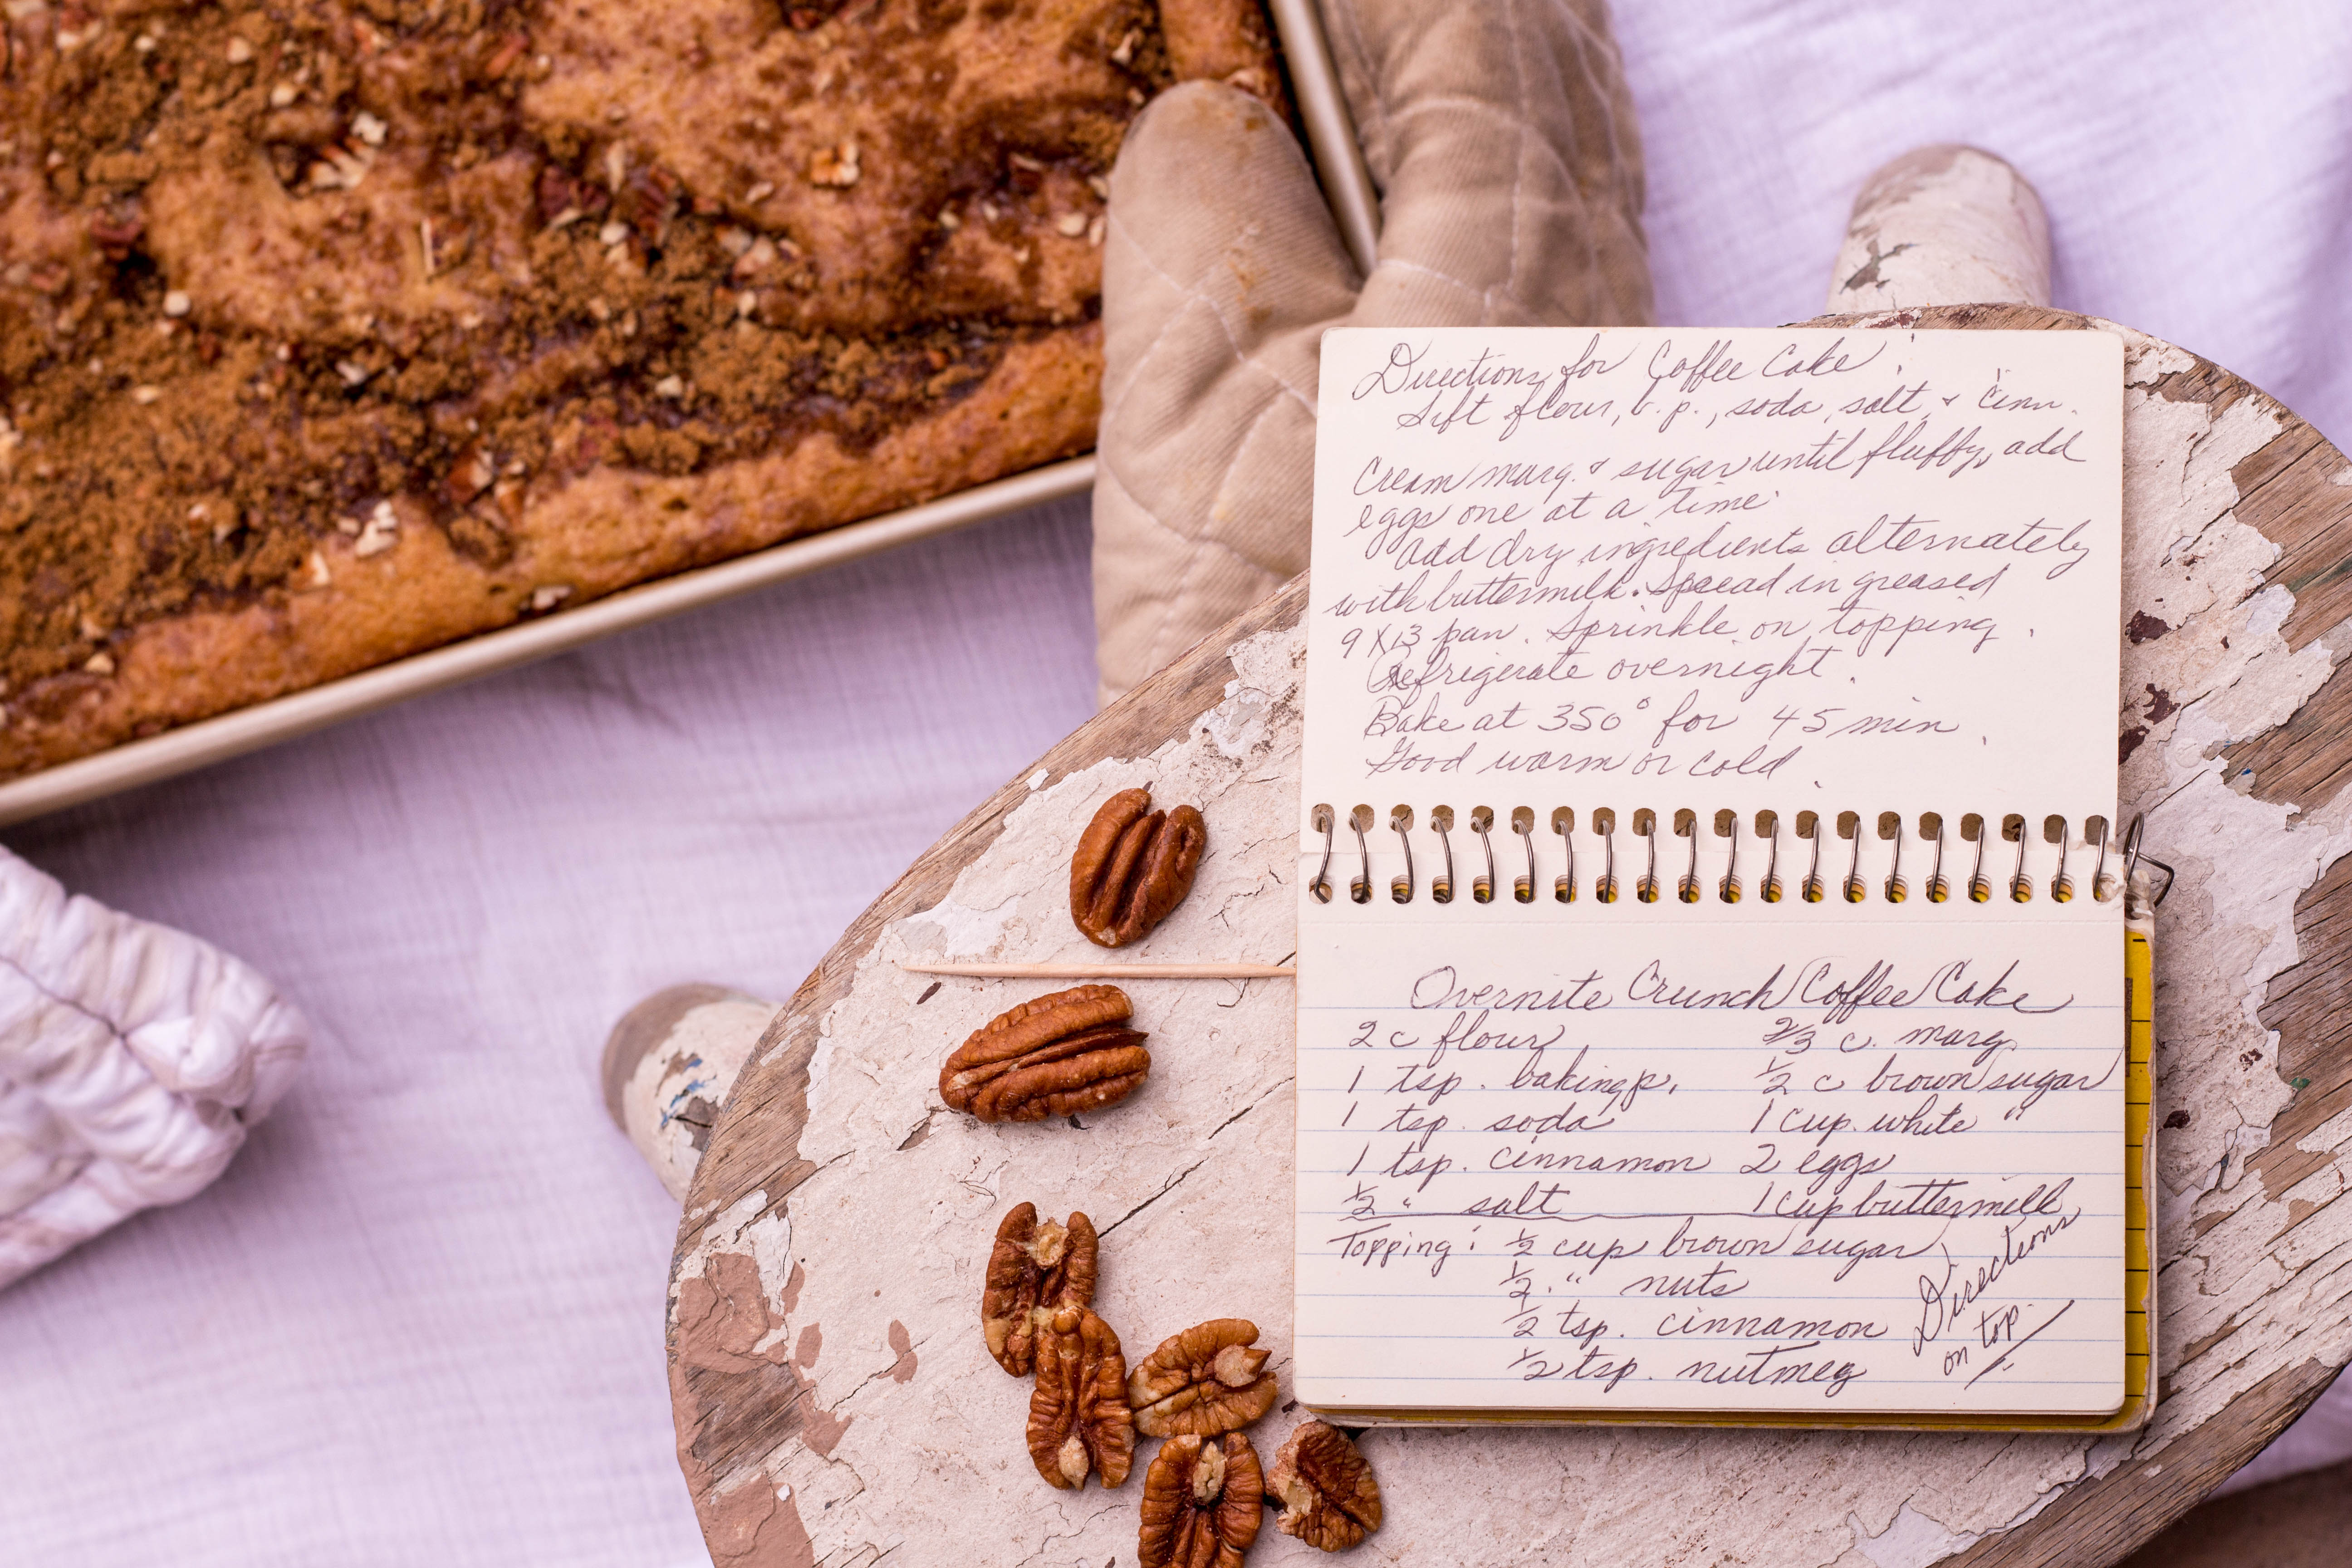 Directions for Coffee Cake:
Sift flour, b.p., soda, salt, & cinn.
Cream marg. & sugar until fluffy, add
eggs one at a time.
Add dry ingredients alternately
with buttermilk. Spread in greased
9 X 13 pan. Sprinkle on topping.
Refrigerate overnight.
Bake at 350° for 45 min.
Good warm or cold.
Overnite Crunch Coffee Cake
2 c flour 2/3 c. marg.
1 tsp. baking p. 1/2 c brown sugar
1 tsp. soda 1 cup. white "
1 tsp. cinnamon 2 eggs
1/2 " salt 1 cup buttermilk
Topping: 1/2 cup brown sugar
1/2 " nuts
1/2 tsp. cinnamon
1/2 tsp. nutmeg
Directions
on top.